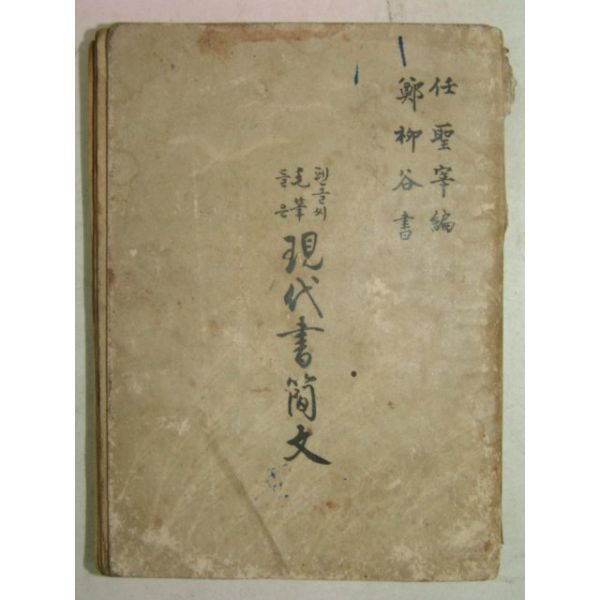 任聖宰編
鄭柳谷書
펜글씨
毛筆
들은
現代書簡文